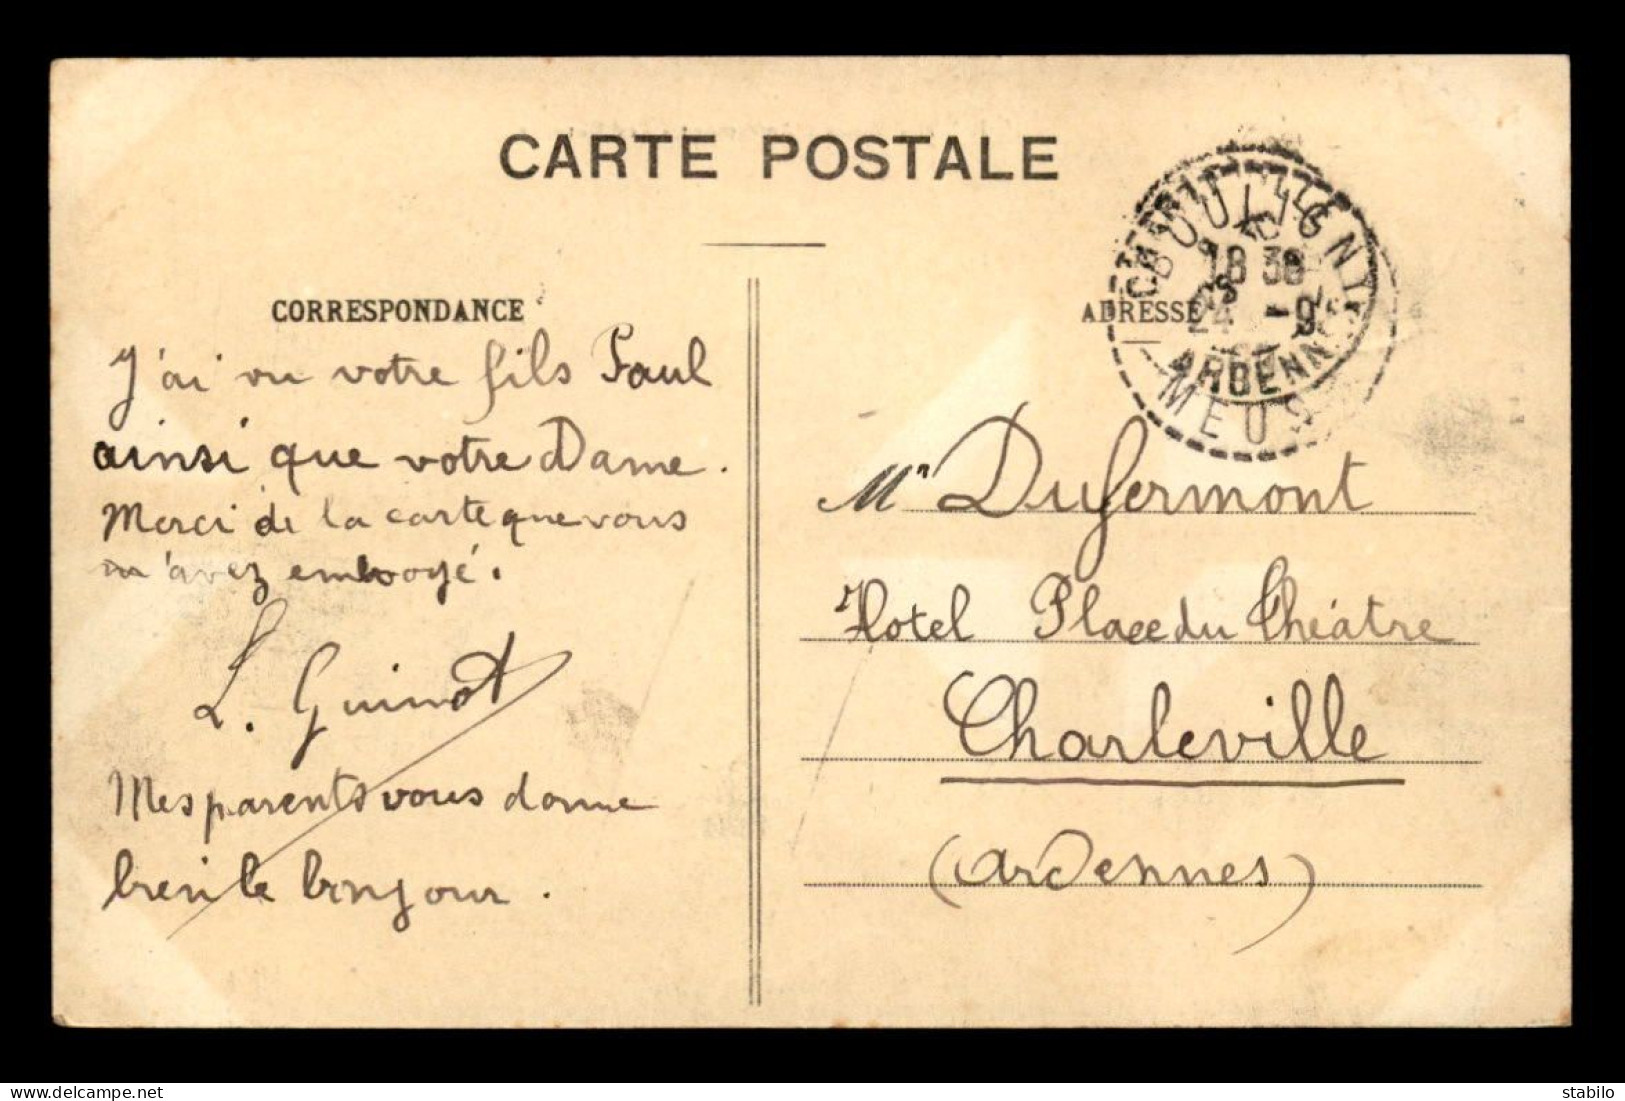 CARTE POSTALE
CORRESPONDANCE
J'ai vu votre fils Paul
ainsi que votre Dame.
Merci de la carte que vous
m'avez envoyé.
L. Guinot
Mes parents vous donne
bien le bonjour.
ADRESSE
BOULIGNY
CHARLEVILLE
18 30
24 -9
ARDENNES
MEUSE
Mr Dufermont
Hotel Place du Théâtre
Charleville
(Ardennes)
delcampe.net
stabilo